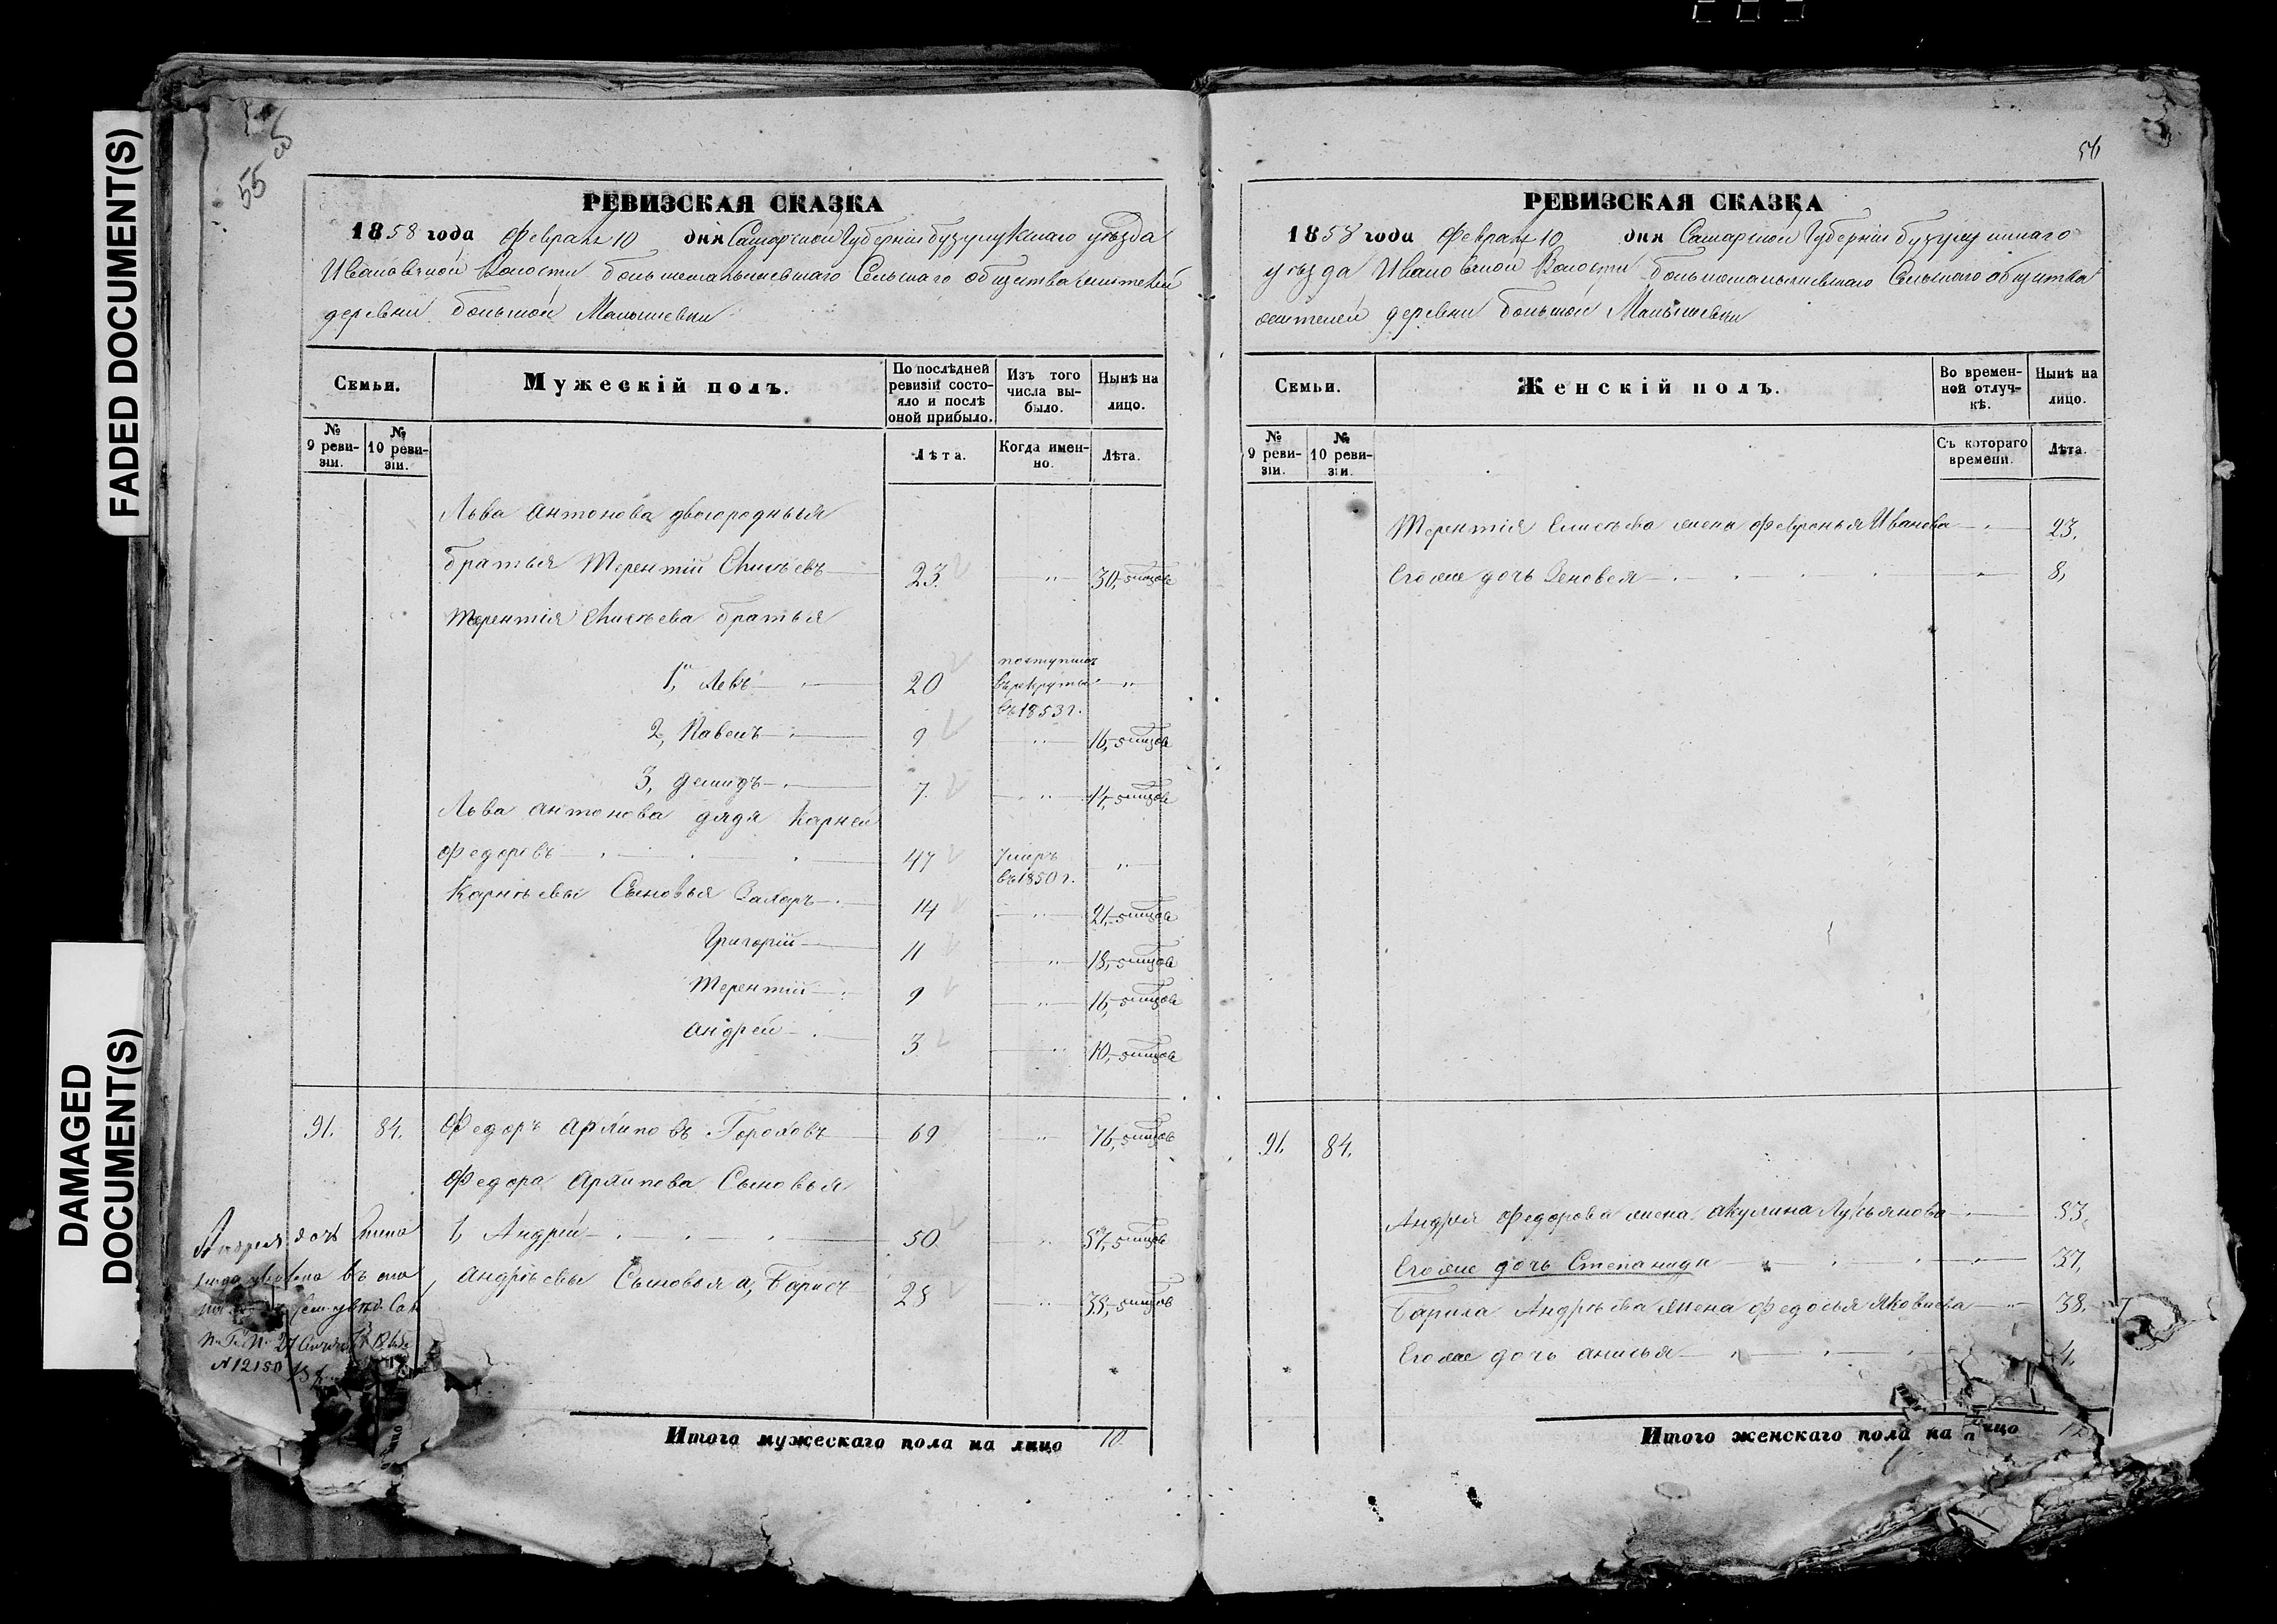 FADED DOCUMENT(S)
DAMAGED
DOCUMENT(S)
55
РЕВИЗСКАЯ СКАЗКА
1858 года Февраля 10 дня Самарской Губернии бузулукскаго уѣзда
Ивановской Волости большемалышевскаго Сельскаго общества жителей
деревни большой Малышевки
Семьи.
Мужескій полъ.
По послѣдней
ревизіи состо-
яло и послѣ
оной прибыло.
Изъ того
числа вы-
было.
Нынѣ на
лицо.
№
9 реви-
зіи.
№
10 реви-
зіи.
Лѣта.
Когда имен-
но.
Лѣта.
Льва Антонова двоюродныя
братья Терентій Елисѣевъ 23 " 30,
Терентія Елисѣева братья
1, Левъ 20 поступилъ въ рекруты въ 1853 г. "
2, Павелъ 9 " 16,
3, Демидъ 7 " 14,
Льва Антонова дядя Карней
Федоровъ 47 умеръ въ 1850 г. "
Карнѣевы Сыновья Захаръ 14 " 21,
Григорій 11 " 18,
Терентій 9 " 16,
Андрей 3 " 10,
91. 84. Федоръ Архиповъ Гороховъ 69 " 76,
Федора Архипова Сыновья
1, Андрей 50 " 57,
Андрѣевы Сыновья а, Барисъ 28 " 35,
дочь
въ
N 12150
Итого мужескаго пола на лицо 10
56
РЕВИЗСКАЯ СКАЗКА
1858 года Февраля 10 дня Самарской Губернии бузулукскаго
уѣзда Ивановской Волости большемалышевскаго Сельскаго общества
жителей деревни большой Малышевки
Семьи.
Женскій полъ.
Во времен-
ной отлуч-
кѣ.
Нынѣ на
лицо.
№
9 реви-
зіи.
№
10 реви-
зіи.
Съ котораго
времени.
Лѣта.
Терентія Елисѣева жена Февронья Иванова " 23.
Его же дочь Зеновея " 8,
91. 84.
Андрея Федорова жена Акулина Лукьянова 53,
Его же дочь Степанида " 37,
Бариса Андрѣева жена Федосья Яковлева " 38.
Его же дочь Анисья 4.
Итого женскаго пола на лицо